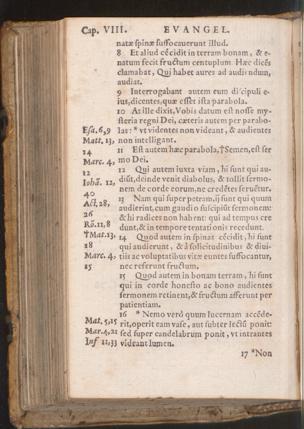 Cap. VIII. EVANGEL.
natæ spinæ suffocauerunt illud.
8 Et aliud cécidit in terram bonam, & e-
natum fecit fructum centuplum. Hæc dicés
clamabat, Qui habet aures ad audiendum,
audiat.
9 Interrogabant autem eum discipuli e-
ius, dicentes, quæ esset ista parabola.
10 At ille dixit, Vobis datum est nosse my-
steria regni Dei, cæteris autem per parabo-
Esa. 6, 9 las: * vt videntes non videant, & audientes
Matt. 13, non intelligant.
14 11 Est autem hæc parabola, †Semen, est ser
Marc. 4, mo Dei.
12 12 Qui autem iuxta viam, hi sunt qui au-
Iohā. 12, diút, deinde venit diabolus, & tollit sermo-
40 nem de corde eorum, ne credétes seruétur.
Act, 28, 13 Nam qui super petram, ij sunt qui quum
26 audierint, cum gaudio suscipiút sermonem:
Rō. 11, 8 & hi radices non habent: qui ad tempus cre
†Mat. 13, dunt, & in tempore tentationis recedunt.
18 14 Quod autem in spinas cécidit, hi sunt
Marc. 4, qui audierunt, & à sollicitudinibus & diui-
15 tiis ac voluptatibus vitæ euntes suffocantur,
nec referunt fructum.
15 Quod autem in bonam terram, hi sunt
qui in corde honesto ac bono audientes
sermonem retinent, & fructum afferunt per
patientiam.
16 * Nemo verò quum lucernam accéde-
Mat. 5, 15 rit, operit eam vase, aut subter lectū ponit:
Mar. 4, 21 sed super candelabrum ponit, vt intrantes
Inf 11, 33 videant lumen.
17 *Non